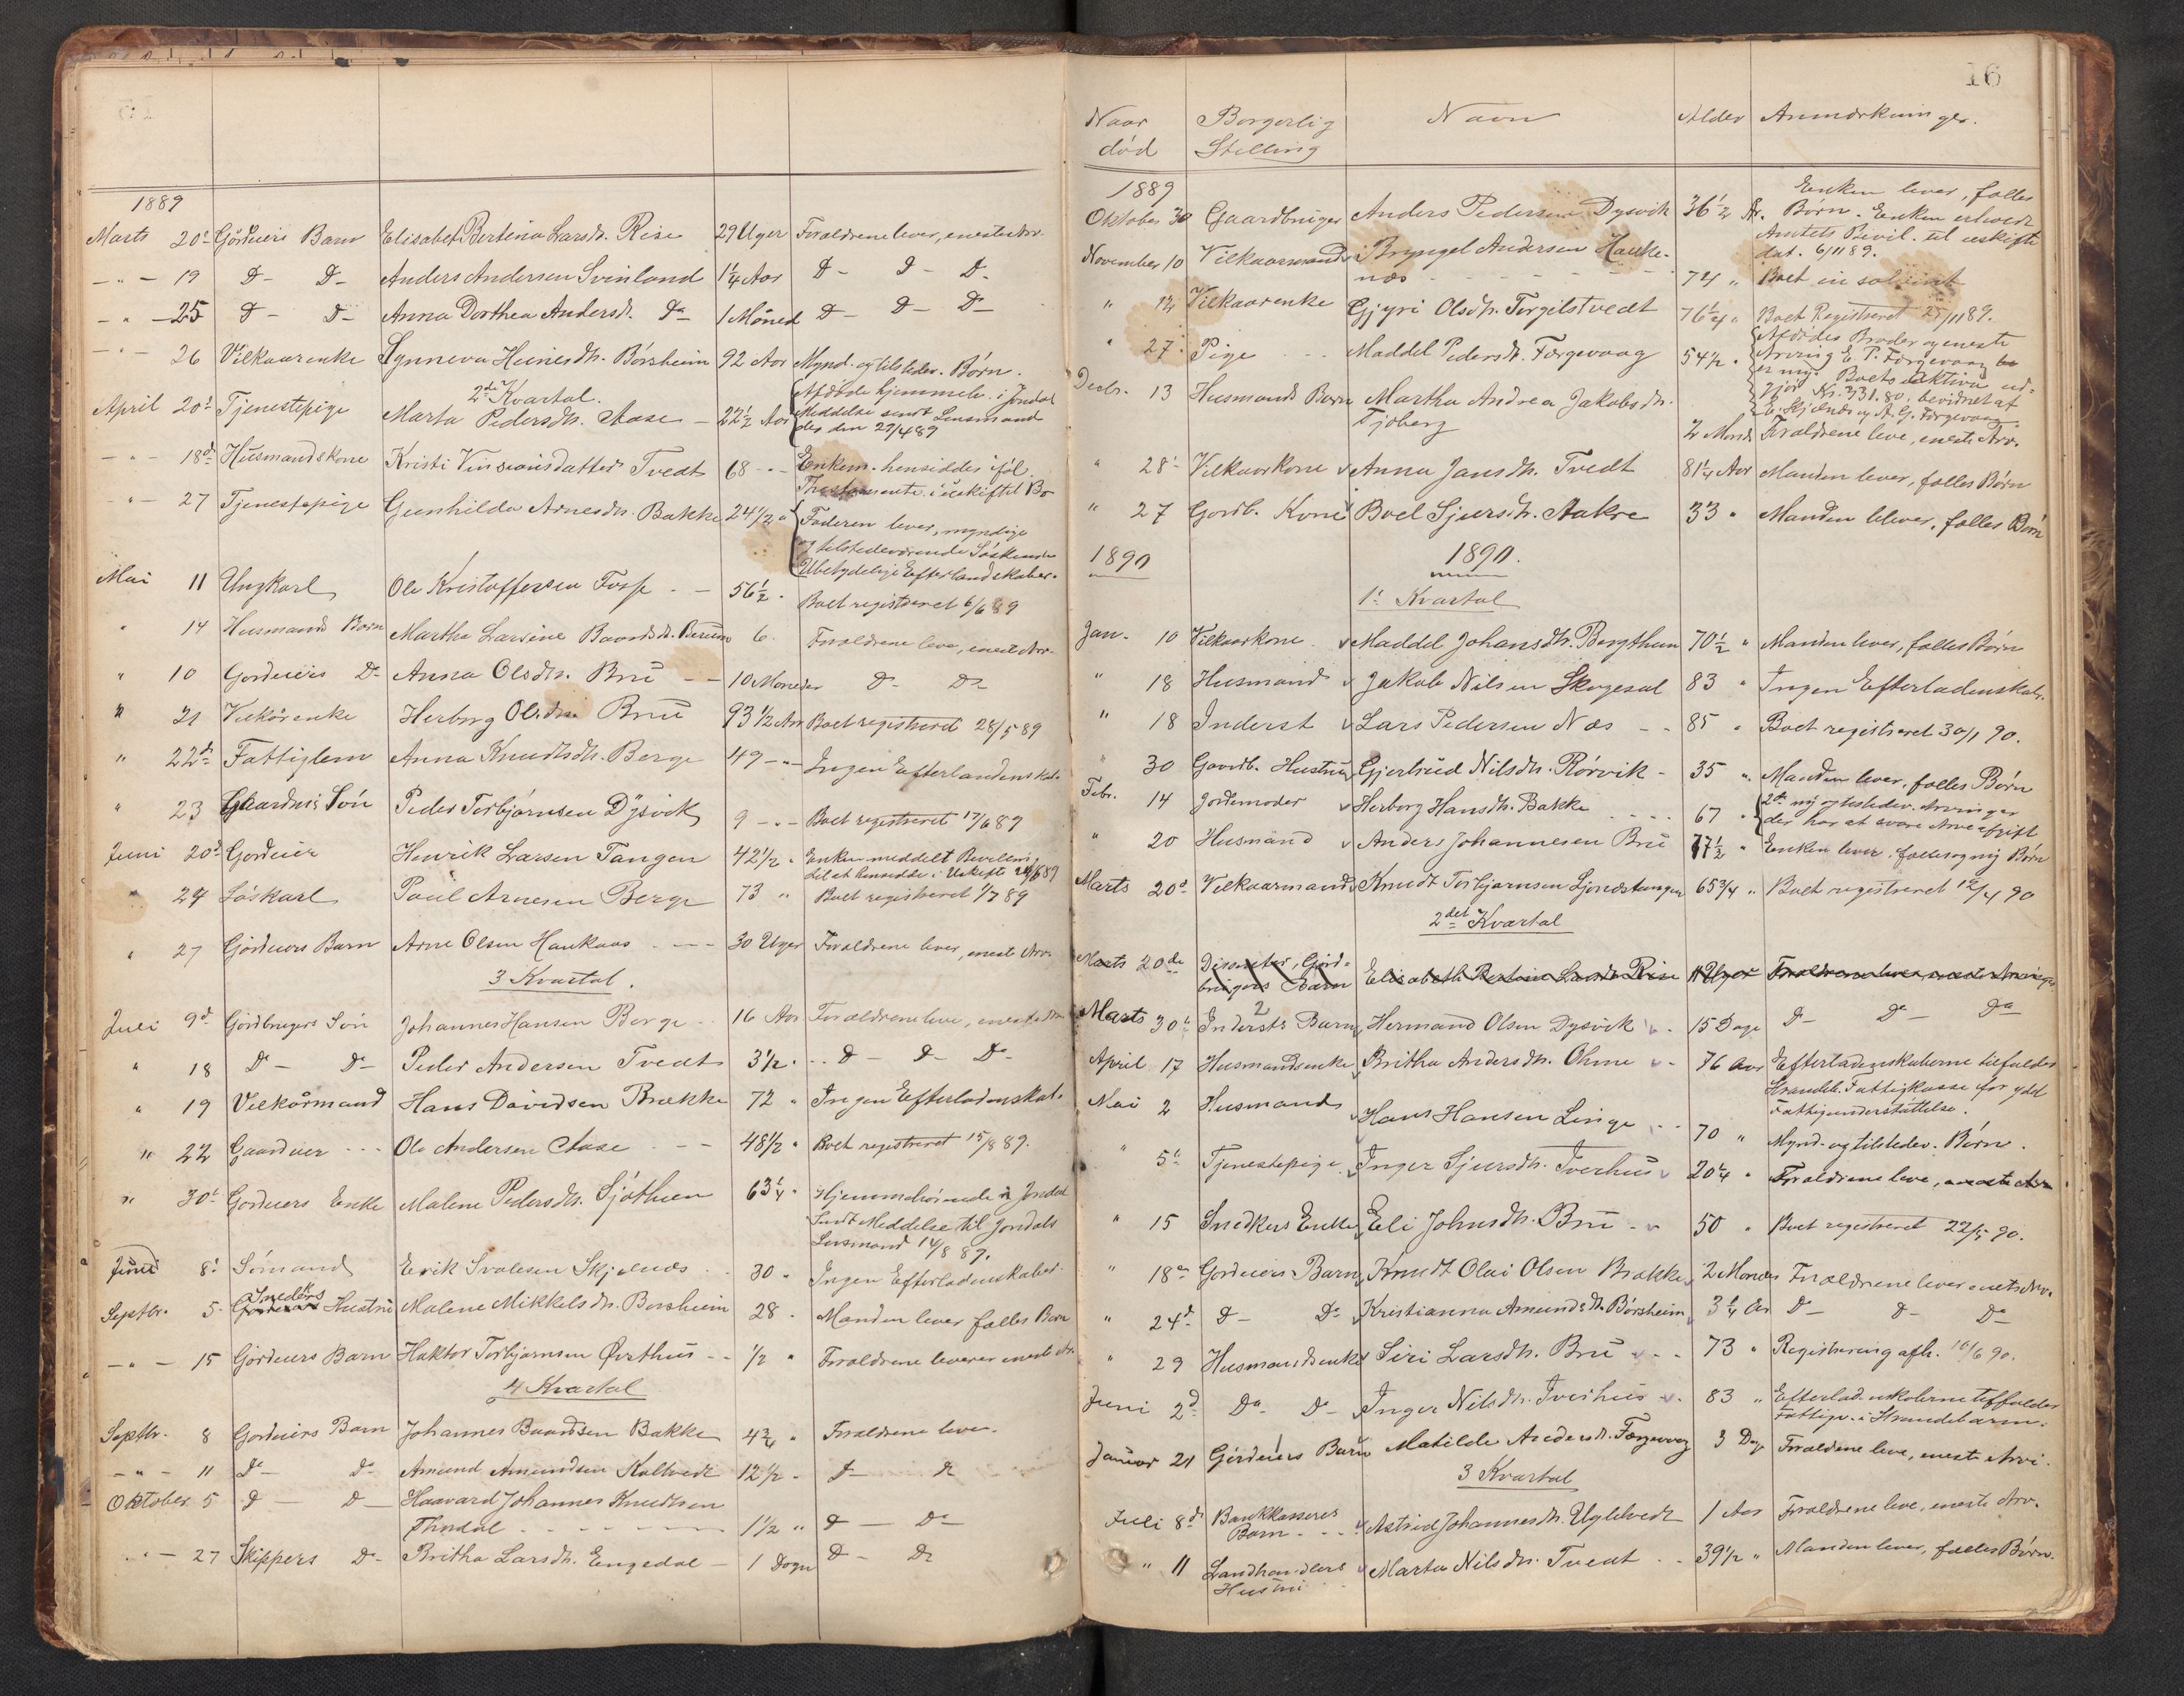 1889
Marts 20de Gårdeiers Barn Elisabet Bertina Larsdr. Rise 29 Uger Forældrene lever, eneste Arv.
— " — 19 Do Do Anders Andersen Svinland 1 1/4 Aar Do Do Do
— " — 25 Do Do Anna Dorthea Andersd. Do 1 Måned Do Do Do
— " — 26 Vilkaarenke Synneva Heinesdr. Börsheim 92 Aar Mynd. og tilstedev. Börn.
2de Kvartal.
April 20de Tjenestepige Marta Pedersdtr. Aase — 22 1/2 Aar Afdöde hjemmeh. i Jondal
Meddelse sendt Lensmand
der den 27/4 89
— " — 18de Husmandskone Kristi Tvedt 68 — " —
i uskiftet Bo
— " — 27 Tjenestepige Gunhilda Arnesdr. Bakke 24 1/2 " Faderen lever, myndige
og tilstedeværende Söskende
Ubetydelige Efterlandskaber.
Mai 11 Ungkarl Ole Kristoffersen — 56 1/2 " Boet registreret 6/6 89
" 14 Husmands Barn Martha Larsine Baardsd. 6 Forældrene leve, eneste Arv.
" 10 Gardeiers Do Anna Olsdtr. Bru — 10 Moneder Do Do
" 21 Vilkårenke Herborg Olsdtr. Bru 93 1/2 Aar Boet registreret 28/5 89
" 22de Fattiglem Anna Knudtsdtr. Berge 49 — " — Ingen Efterlandenskab.
" 23 Gaardeiers Sön Peder Torbjörnsen Dysvik 9 — " — Boet registreret 17/6 89
Juni 20de Gårdeier Henrik Larsen Tangen 42 1/2 " Enken meddelt Bevilling
til at hensidde i Uskifte 24/6 89
" 24 Löskarl Paul Arnesen Berge 73 " Boet registreret 1/7 89
" 27 Gårdeiers Barn Arne Olsen Haukaas — 30 Uger Forældrene lever, eneste Arv.
3 Kvartal.
Juli 9de Gårdbrugers Sön Johannes Hansen Berge 16 Aar Forældrene leve, eneste Arv
" 18 Do Do Peder Andersen Tvedt 3 1/2 " Do Do Do
" 19 Vilkårmand Hans Davidsen Brække 72 " Ingen Efterladenskab.
" 22 Gaardeier Ole Andersen Aase — 48 1/2 " Boet registreret 15/8 89.
" 30te Gardeiers Enke Malene Pedersdtr. Sjöthun 63 1/4 " Hjemmehörende i Jondal
Sendt Meddelse til Jondals
Lensmand 14/8 89.
Juni 8de Sömand Erik Svalesen Skjelnes 30 " Ingen Efterladenskaber
Snedkers
Septbr. 5 Gardeiers Hustru Malene Mikkelsdtr. Borsheim 28 " Manden lever fælles Barn
— " — 15 Gårdeiers Barn Haktor Torbjörnsen Överthus — 1/2 " Forældrene leverer eneste Arv
4 Kvartal
Septbr. 8 Gardeiers Barn Johannes Baardsen Bakke 4 3/4 " Forældrene lever.
— " — 11 Do Do Amund Amundsen Koltvedt 12 1/2 " Do Do
Oktober 5 Do Do Haavard Johannes Knudtsen
Thodal — 1 1/2 " Do — Do
" — 27 Skippers Do Britha Larsdtr. Engedal — 1 Dogn Do Do
16
Naar Borgerlig Navn Alder Anmærkninger.
död Stilling
1889
Oktober 30 Gaardbruger Anders Pedersen Dysvik 36 1/2 År. Enken lever, fælles
Börn. Enken erholdt
Amtets Bevil. til uskifte
dat. 6/11 89.
November 10 Vilkaarsmand Bryngel Andersen Hauke-
næs 74 " Boet insolvent
" 12 Vilkaarenke Gjyri Olsdtr. Torgilstvedt 76 1/4 " Boet Registreret 25/11 89.
" 27 Pige Maddel Pedersdtr. Færgevaag 54 1/2 " Afdödes Broder og eneste
Arving E. P. Færgevaag
er myn. Boets aktiva ud-
gjör Kr. 331.80, bevidnet af
E. Skjelnæs og A. G. Færgevaag.
Decbr. 13 Husmands Barn Martha Andrea Jakobsdtr.
Tjoberg 2 Mond Forældrene leve, eneste Arv.
" 28de Vilkaarkone Anna Jansdtr. Tvedt 81 1/4 Aar Manden lever, fælles Börn
" 27 Gardb. Kone Boel Sjursdtr. Aakre 33 " Manden lever, fælles Börn
1890 1890.
1te Kvartal
Jan. 10 Vilkaarkone Maddel Johansdtr. Bergthun 70 1/2 " Manden lever, fælles Börn
" 18 Husmand Jakob Nilsen Skogesal 83 " Ingen Efterladenskab.
" 18 Inderst Lars Pedersen Næs — 85 " Boet registreret 30/1 90.
" 30 Gaardb. Hustru Gjertrud Nilsdtr. Rörvik — 35 " Manden lever, fælles Börn
Febr. 14 Jordemoder Herborg Hansdtr. Bakke 67 " 2de my og tilstedev. Arvinger
der har at svare Arveafgift
" 20 Husmand Anders Johannesen Bru 77 1/2 " Enken lever, fælles og my Börn
Marts 20de Vilkaarmand Knudt Torbjörnsen 65 3/4 " Boet registreret 12/4 90
2det Kvartal
Marts 20de Dissenter, Gård-
brugers Barn Elisabeth Bertine Larsdtr Rise 11 Uger Forældrene lever, eneste Arvinger
Marts 30te Inderst's Barn Hermand Olsen Dysvik 15 Dage Do Do Do
April 17 Husmandsenke Britha Andersdtr. Ohme 76 Aar Efterladenskaberne tilfalder
Strandeb. Fattigkasse for ydt
Fattigunderstöttelse.
Mai 2 Husmand Hans Hansen Linge 70 " Mynd. og tilstedev. Börn.
" 5te Tjenestepige Inger Sjursdtr. Tverhus 20 1/4 " Forældrene leve, eneste Arv
" 15 Snedkers Enke Eli Johnsdtr. Bru 50 " Boet registreret 22/5 90.
" 18de Gardeiers Barn Knudt Olai Olsen Brække 2 Moneder Forældrene lever enest Arv.
" 24de Do Do Kristianna Amundsdtr. Börsheim 3 1/4 Aar Do Do Do
" 29 Husmandsenke Siri Larsdtr. Bru 73 " Registrering afh. 10/6 90.
Juni 2de Do Do Inger Nilsdtr. Tverhus 83 " Efterladenskaberne tilfalder
Fattigv. i Strandebarm.
Januar 21 Gårdeiers Barn Matilde Andersdtr. Færgevaag 3 Dage Forældrene leve, eneste Arvi.
3 Kvartal
Juli 8de Bankkasseres
Barn Astrid Johannesdtr. Uglehvedt 1 Aar Forældrene leve, eneste Arv.
" 11 Landhandlers
Hustru Marta Nilsdtr. Tvedt 39 1/2 " Manden lever, fælles Börn.